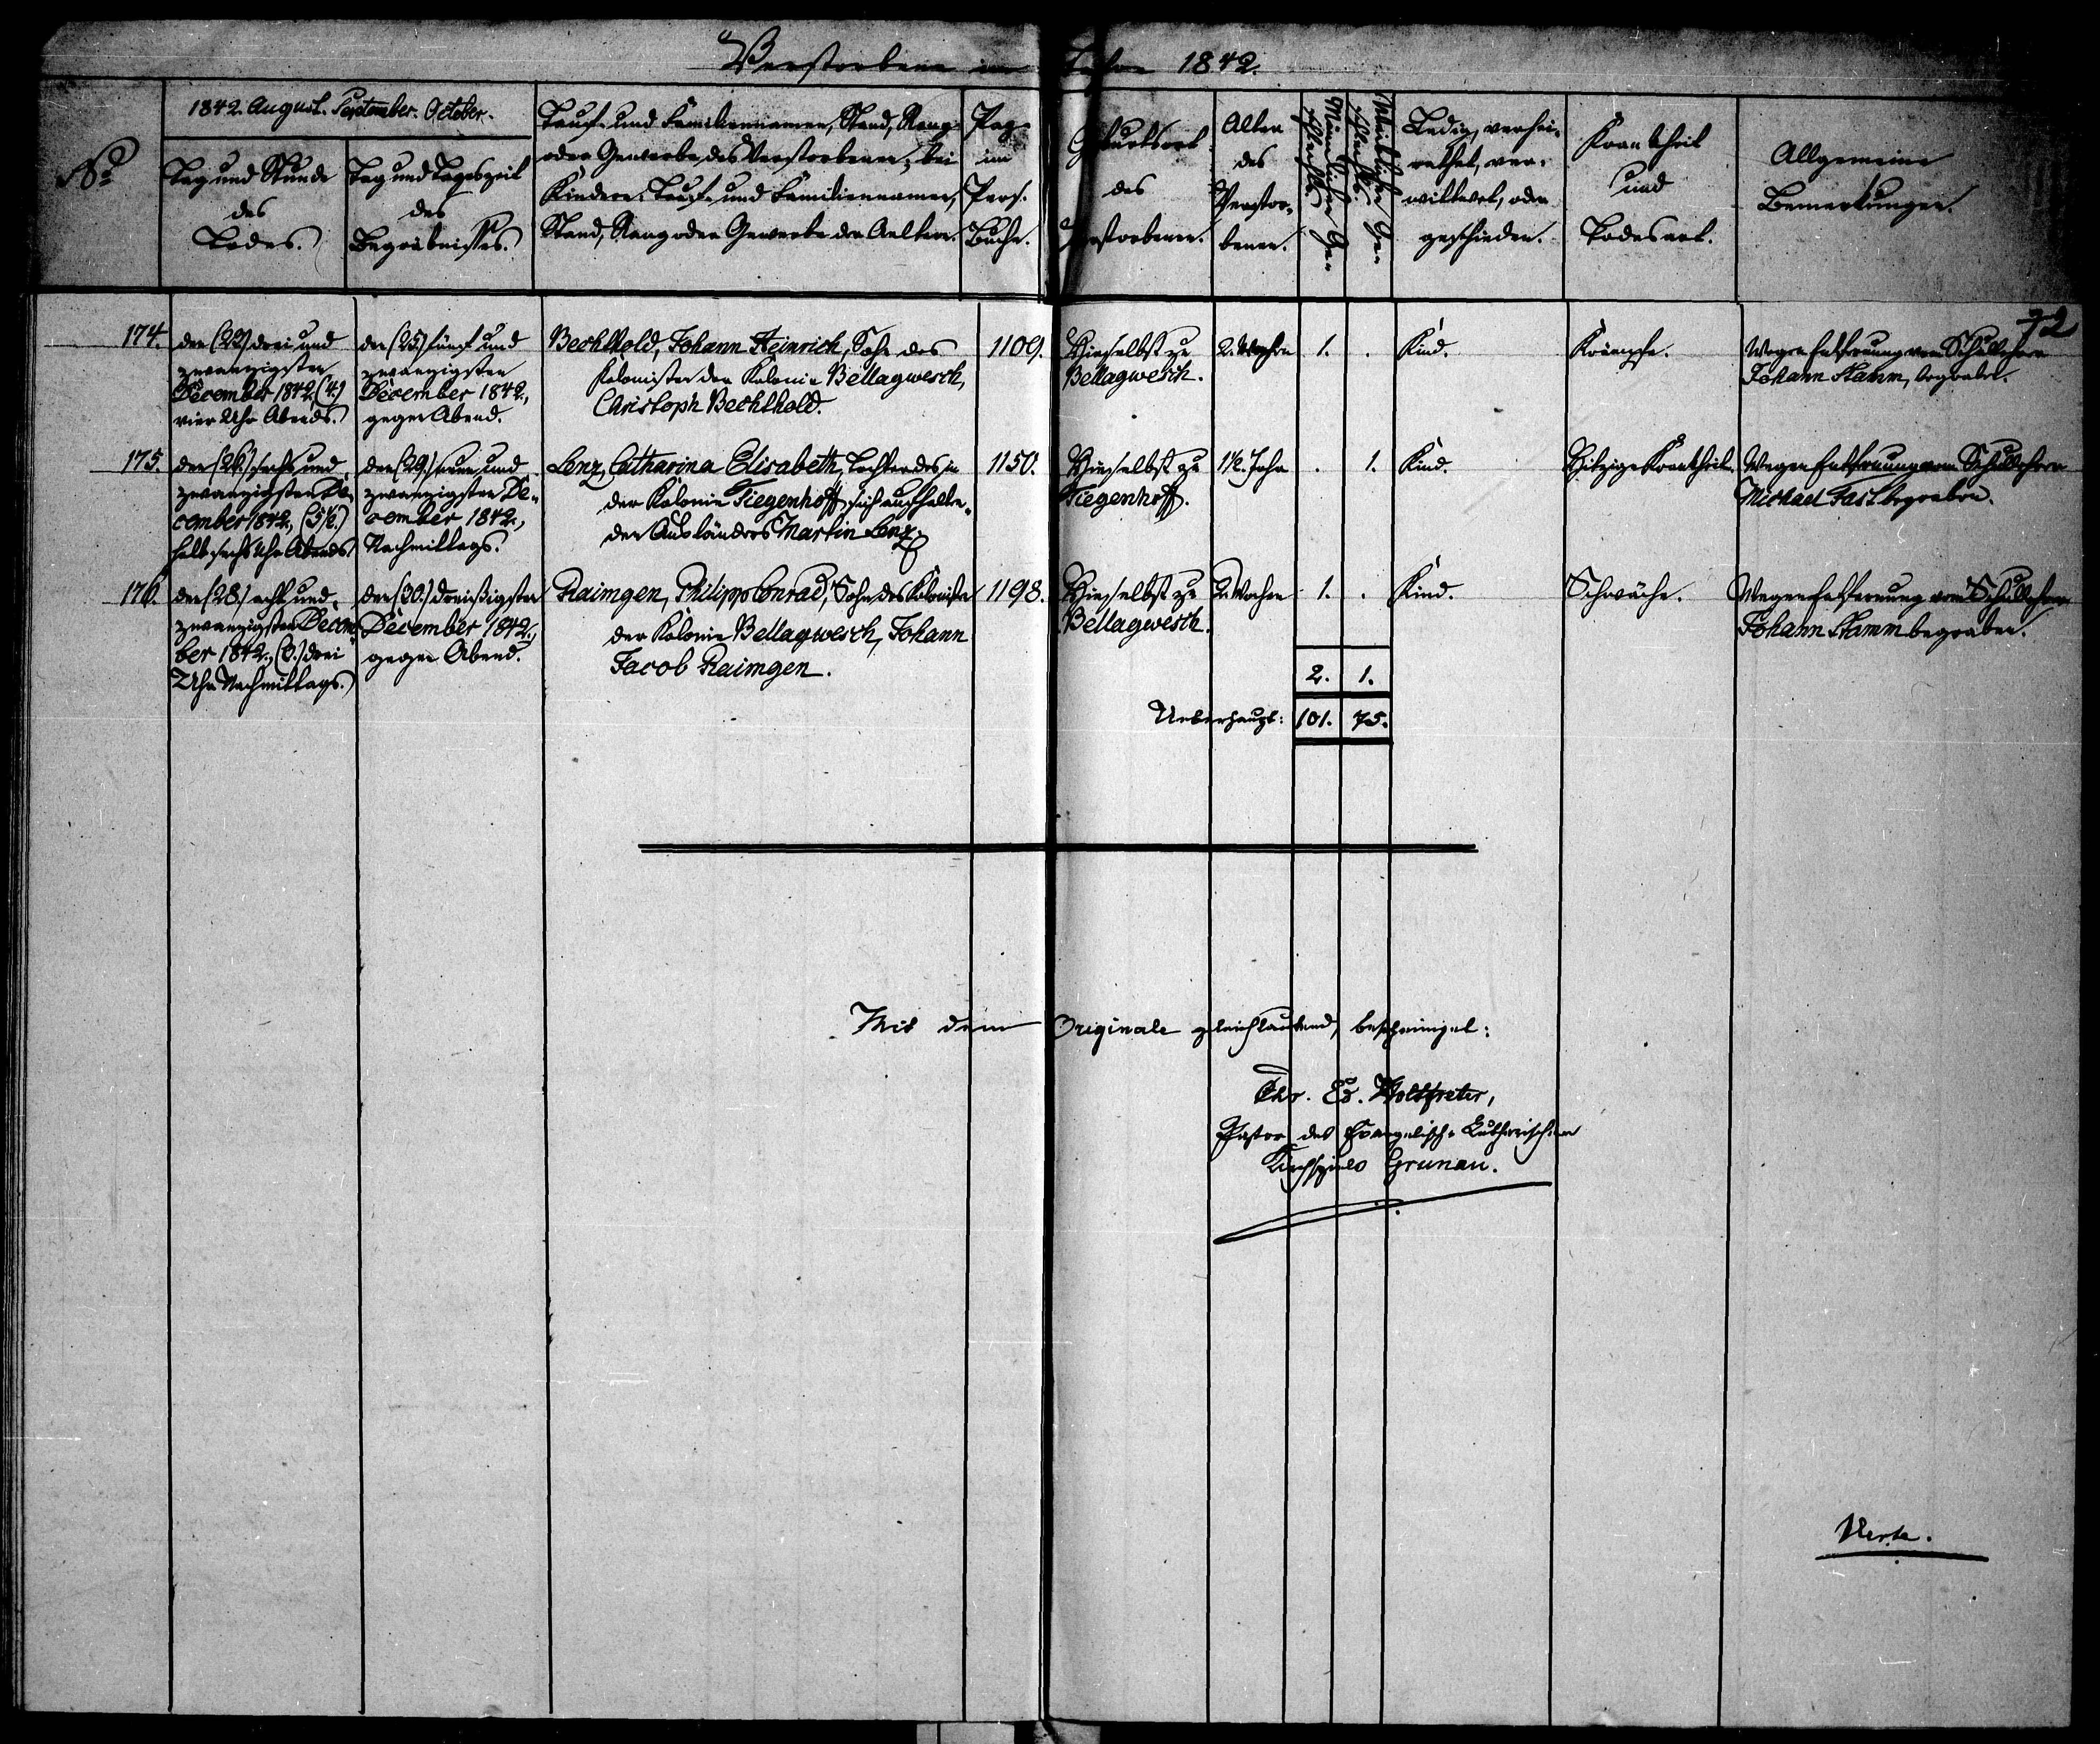 Verstorbene im Jahre 1842.
72
No
1842. August. September. October.
Tag und Stunde
des
Todes.
Tag und Tageszeit
des
Begräbnisses.
Tauf- und Familiennamen, Stand, Rang
oder Gewerbe des Verstorbenen; bei
Kindern: Tauf- und Familiennamen,
Stand, Rang oder Gewerbe der Aeltern.
Pag.
im
Pers.
Buche.
Geburtsort
des
Verstorbenen.
Alter
des
Verstor-
benen.
Männlichen Ge-
schlechts
Weiblichen Ge-
schlechts.
Ledig, verhei-
rathet, ver-
wittwet, oder
geschieden.
Krankheit
und
Todesart.
Allgemeine
Bemerkungen.
174.
den drei und
zwanzigsten
December 1842, (4.)
vier Uhr Abends.
den (25.) fünf und
zwanzigsten
December 1842.,
gegen Abend.
Bechthold, Johann Heinrich, Sohn des
Kolonisten der Kolonie Bellagwesch,
Christoph Bechthold.
1109.
Hierselbst zu
Bellagwesch.
2. Wochen
1.
.
Kind.
Krämpfe.
Wegen Entfernung vom Schullehrer
Johann Stamm, begraben.
175.
den (26.) sechs und
zwanzigsten De-
cember 1842., (5½.)
halb sechs Uhr Abends
den (29.) neun und
zwanzigsten De-
cember 1842.,
Nachmittags.
Lenz, Catharina Elisabeth, Tochter des in
der Kolonie Tiegenhoff sich aufhalten-
den Ausländers Martin Lenz.
1150.
Hierselbst zu
Tiegenhoff.
1½. Jahr
.
1.
Kind.
Hitzige Krankheit.
Wegen Entfernung vom Schullehrer
Michael Fast begraben.
176.
den (28.) acht und
zwanzigsten Decem-
ber 1842., (3.) drei
Uhr Nachmittags.
den (30.) dreißigsten
December 1842.,
gegen Abend.
Raimgen, Philipp Conrad, Sohn des Kolonisten
der Kolonie Bellagwesch, Johann
Jacob Raimgen.
1198.
Hierselbst zu
Bellagwesch.
2. Wochen
1.
.
Kind.
Schwäche.
Wegen Entfernung vom Schullehrer
Johann Stamm begraben.
2. 1.
Ueberhaupt: 101. 75.
Mit dem Originale gleichlautend, bescheinigt:
Chr. Ed. Holtfreter,
Pastor des Evangelisch-Lutherischen
Kirchspiels Grunau.
Verte.